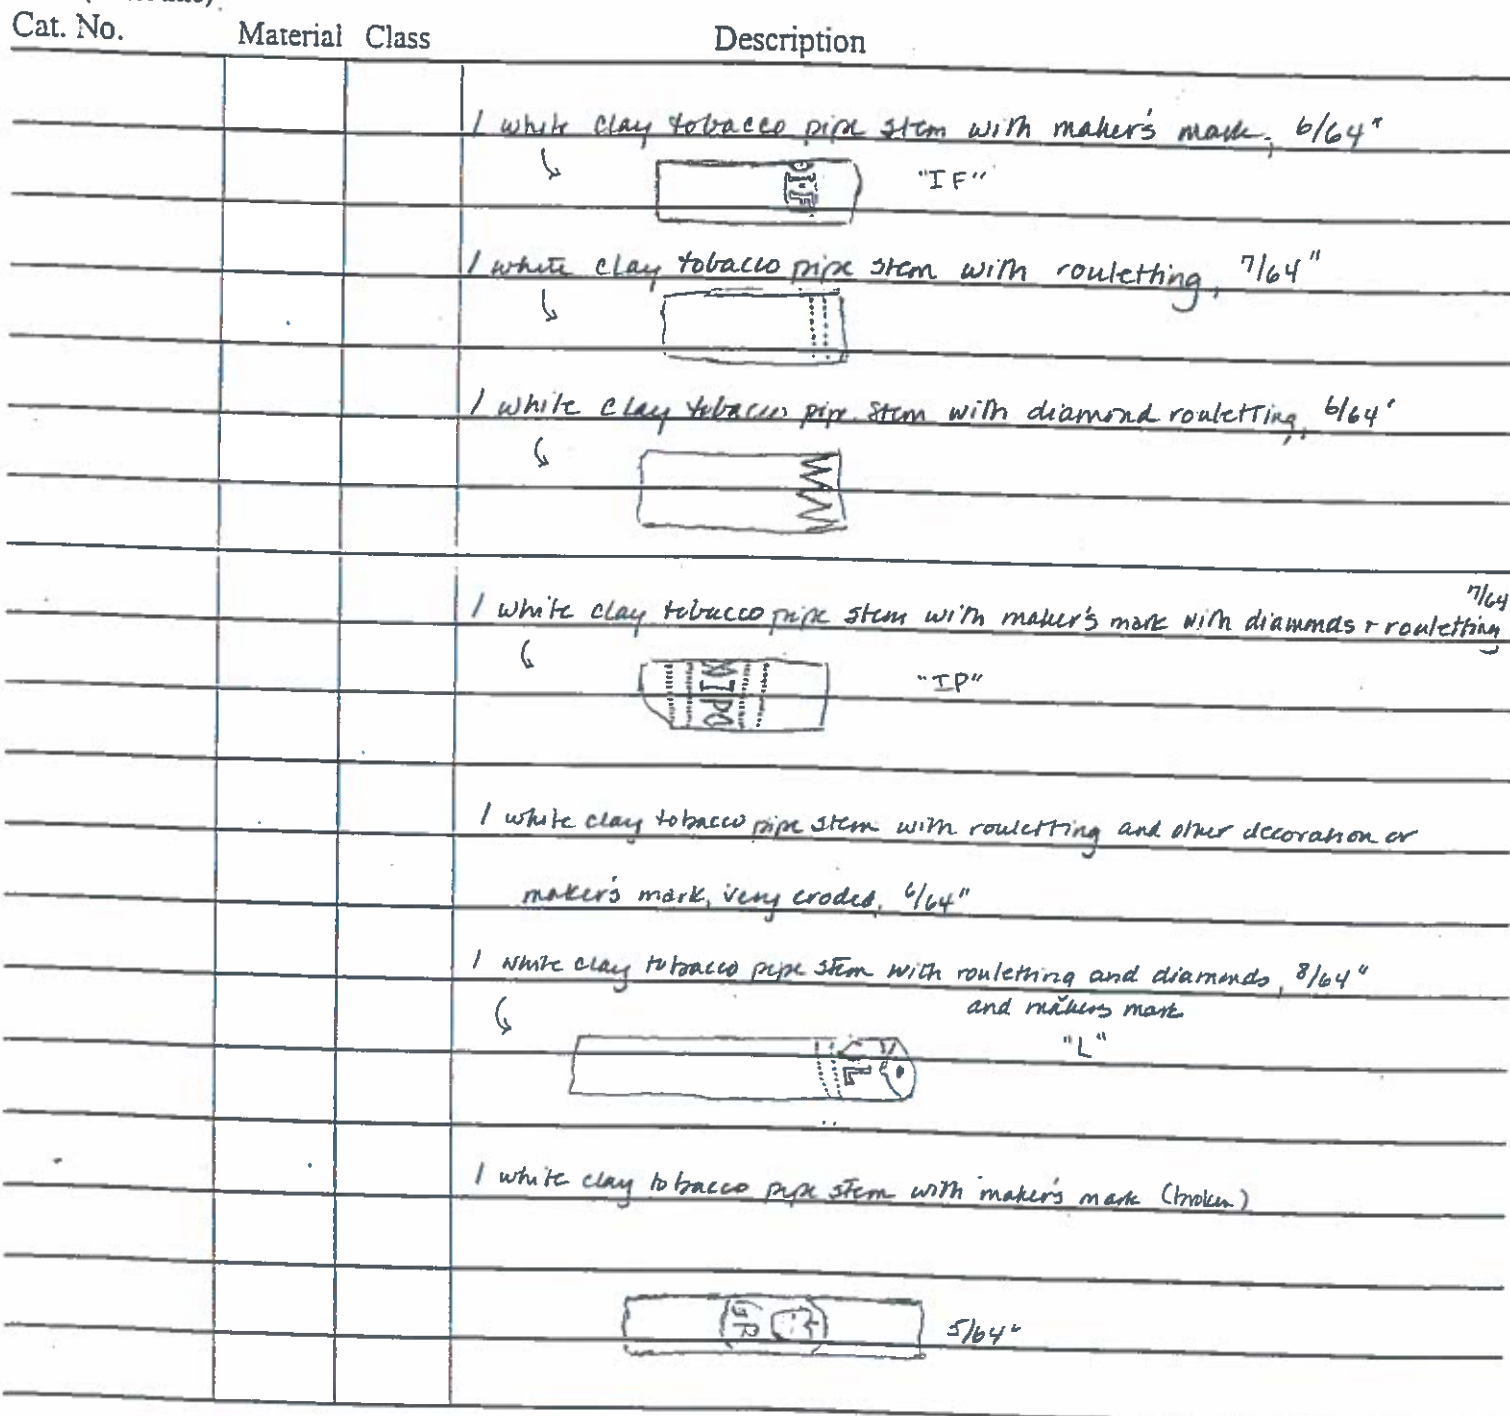 Cat. No. Material Class Description
1 white clay tobacco pipe stem with maker's mark, 6/64"
"IF"
1 white clay tobacco pipe stem with rouletting, 7/64"
1 white clay tobacco pipe stem with diamond rouletting, 6/64"
7/64
1 white clay tobacco pipe stem with maker's mark with diamonds + rouletting
"IP"
IP
1 white clay tobacco pipe stem with rouletting and other decoration or
maker's mark, very eroded, 6/64"
1 white clay tobacco pipe stem with rouletting and diamonds, 8/64"
and makers mark
"L"
L
1 white clay tobacco pipe stem with maker's mark (broken)
5/64"